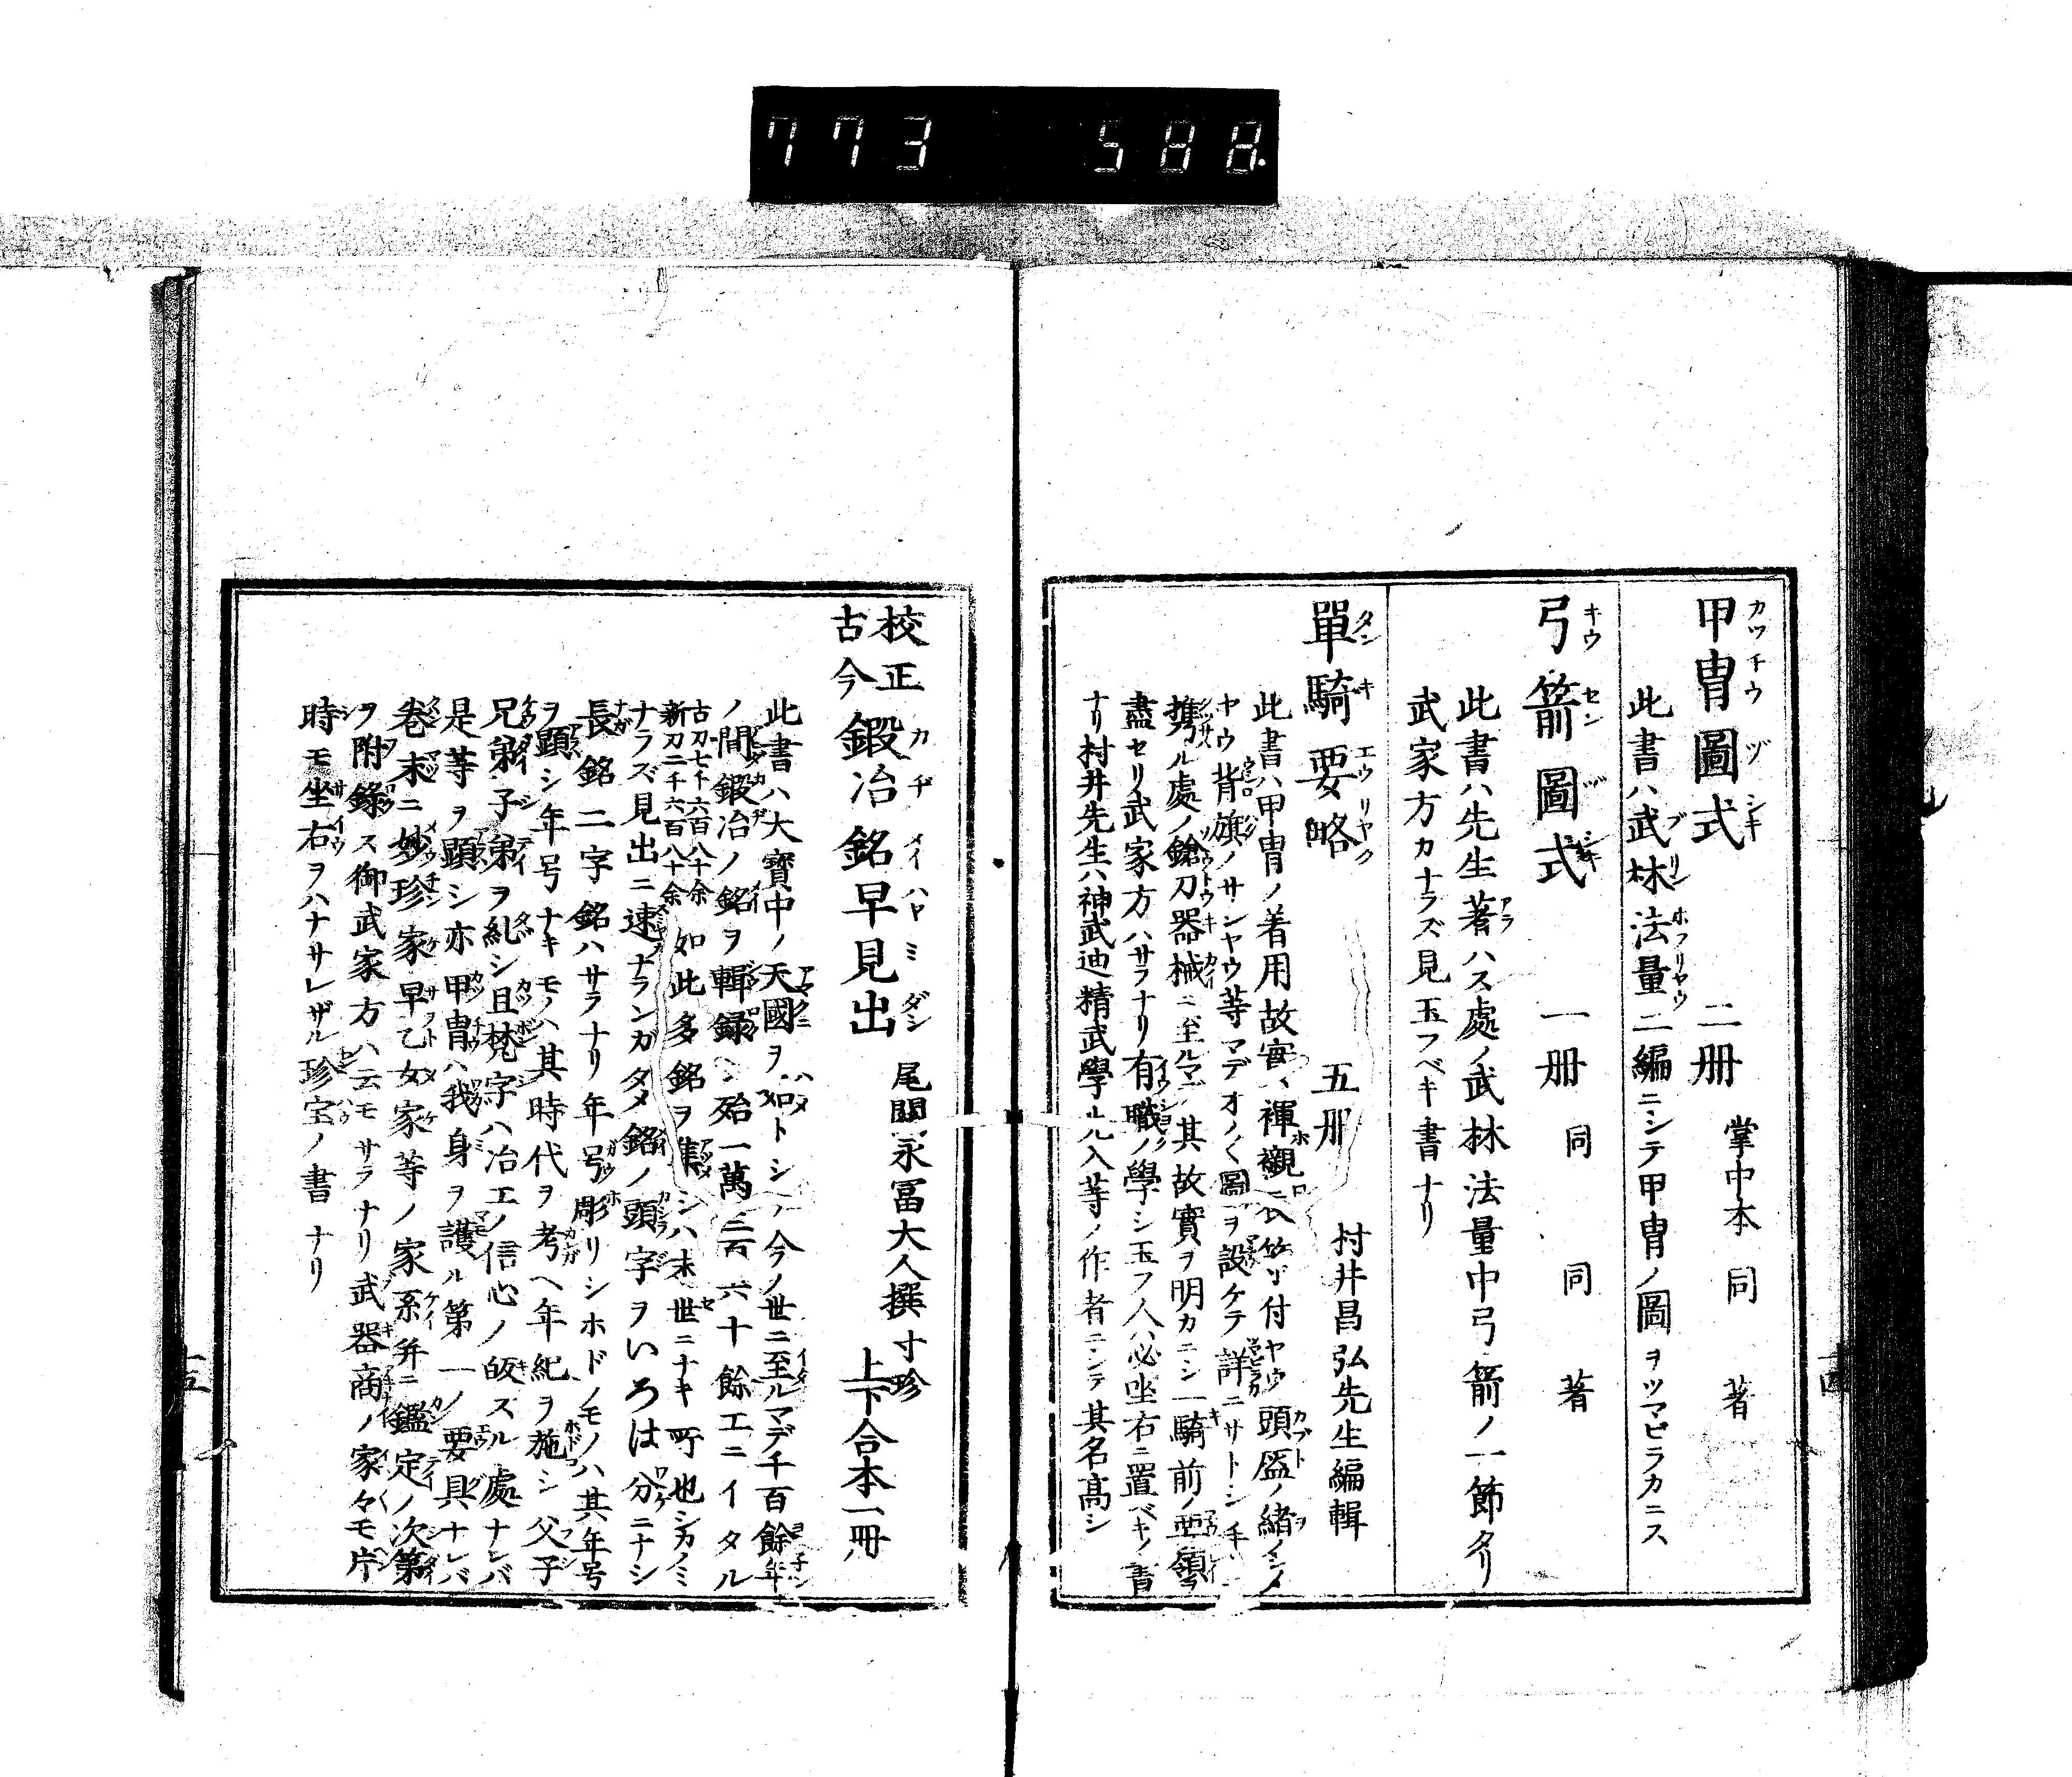 773 588.
甲冑圖式 二冊 掌中本 同 著
此書ハ武林法量二編ニシテ甲冑ノ圖ヲツマビラカニス
弓箭圖式 一冊 同 同 著
此書ハ先生著ハス處ノ武林法量中弓箭ノ一節タリ
武家方カナラズ見玉フベキ書ナリ
單騎要略 五冊 村井昌弘先生編輯
此書ハ甲冑ノ着用故實ハ褌襯ニ 付ヤウ頭盔ノ緒ノシメ
ヤウ背旗ノサシヤウ等マデオノ〱圖ヲ設ケテ詳ニサトシ
携ル處ノ鎗刀器械ニ至ルマデ其故實ヲ明カニシ一騎前ノ要領ヲ
盡セリ武家方ハサラナリ有職ノ學シ玉フ人ハ必坐右ニ置ベキノ書
ナリ村井先生ハ神武迪精武學 入等ノ作者ニシテ其名高シ
校正古今鍛冶銘早見出 尾關永冨大人撰 寸珍上下合本一冊
此書ハ大寳中ノ天國ヲ始トシ今ノ世ニ至ルマデ千百餘年
ノ間鍛冶ノ銘ヲ輯録シ殆一萬 六十餘工ニイタル
古刀七千六百八十余
新刀二千六百八十余
如此多銘ヲ集シハ未世ニナキ所也シカノミ
ナラズ見出ニ速ナランガタメ銘ノ頭字ヲいろは分ニナシ
長銘二字銘ハサラナリ年号彫リシホドノモノハ其年号
ヲ顕シ年号ナキモノハ其時代ヲ考ヘ年紀ヲ施シ父子
兄弟子弟ヲ糺シ且梵字ハ冶工ノ信心ノ皈スル處ナレバ
是等ヲ顕シ亦甲冑ハ我身ヲ護ル第一ノ要具ナレバ
巻末ニ妙珍家早乙女家等ノ家系并ニ鑑定ノ次第
ヲ附錄ス御武家方ハ云モサラナリ武器商ノ家々モ片
時モ坐右ヲハナサレザル珍宝ノ書ナリ